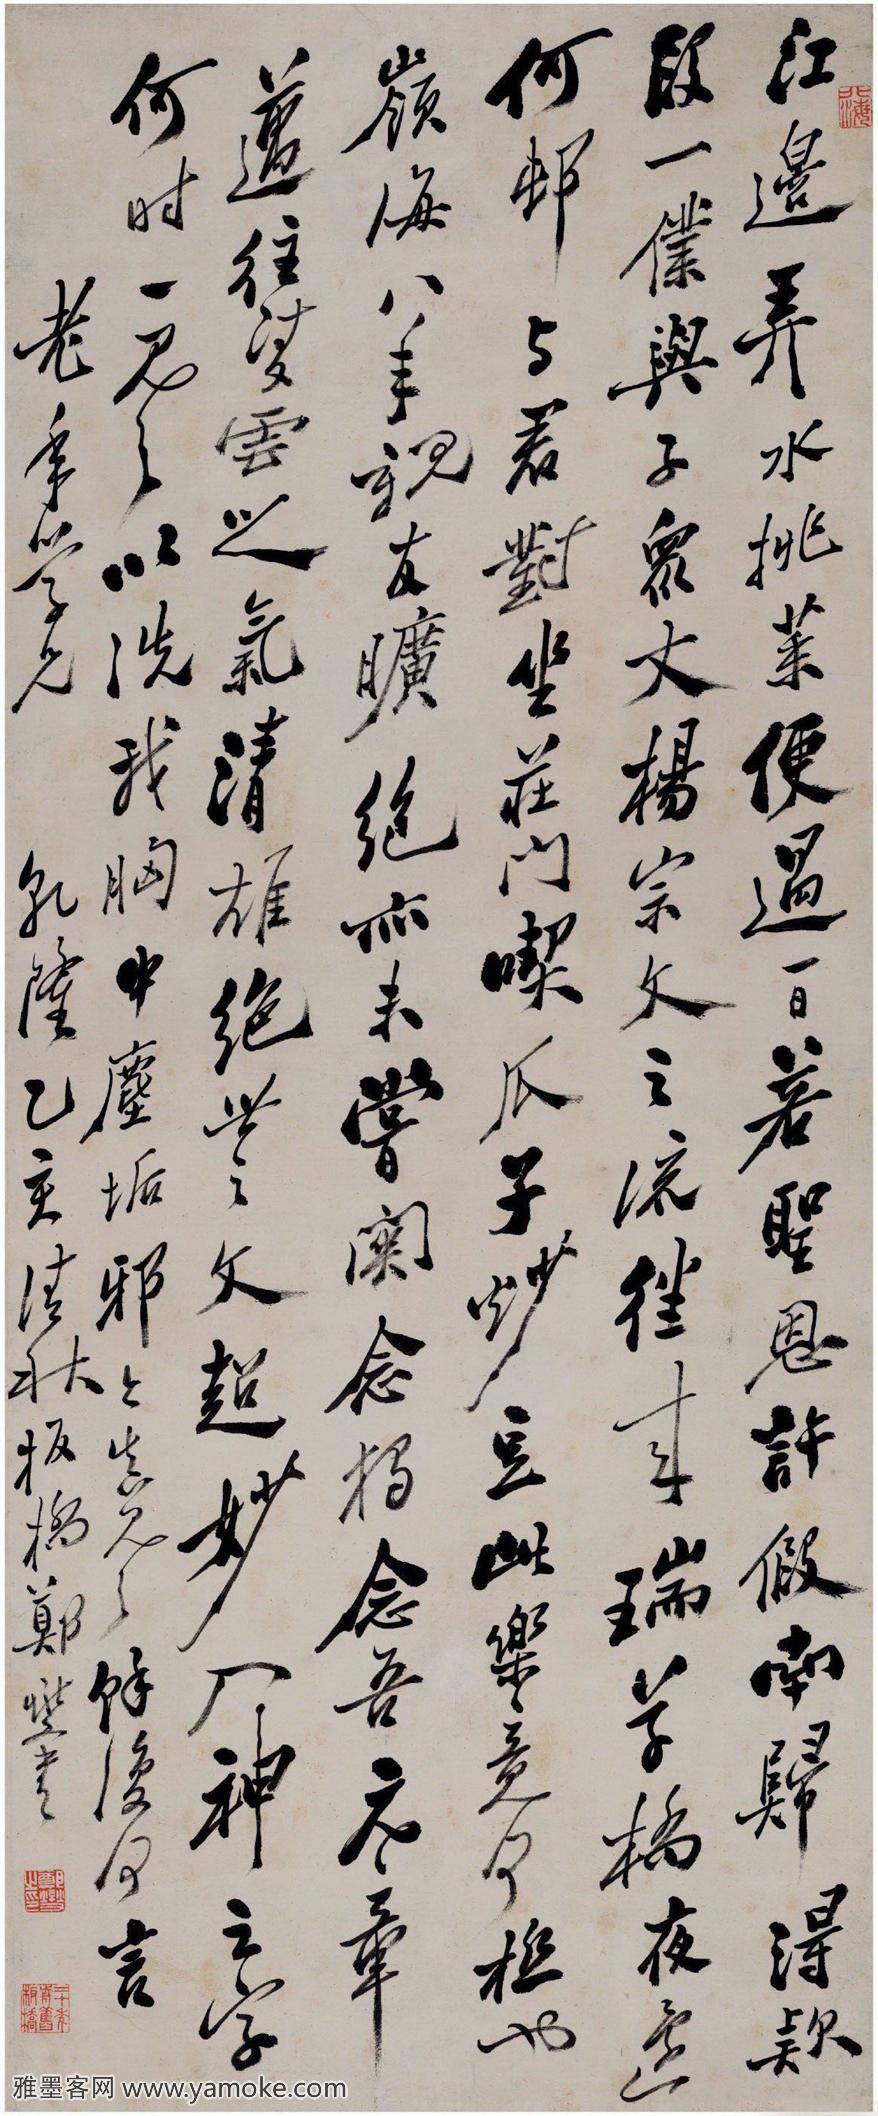 江邊弄水挑菜便過一日若聖恩許假南歸得款
段一僕與子衆丈楊宗文之流往來瑞草橋夜還
何邨与君對坐莊門喫瓜子炒豆此樂竟何極也
嶺海八年親友曠絶亦未嘗關念獨念吾元章
邁往凌雲之氣清雄絶世之文超妙入神之字
何时一見之以洗我胸中塵垢邪今真見之餘復何言
老年學兄 乾隆乙亥清秋板橋鄭燮書
雅墨客网 www.yamoke.com